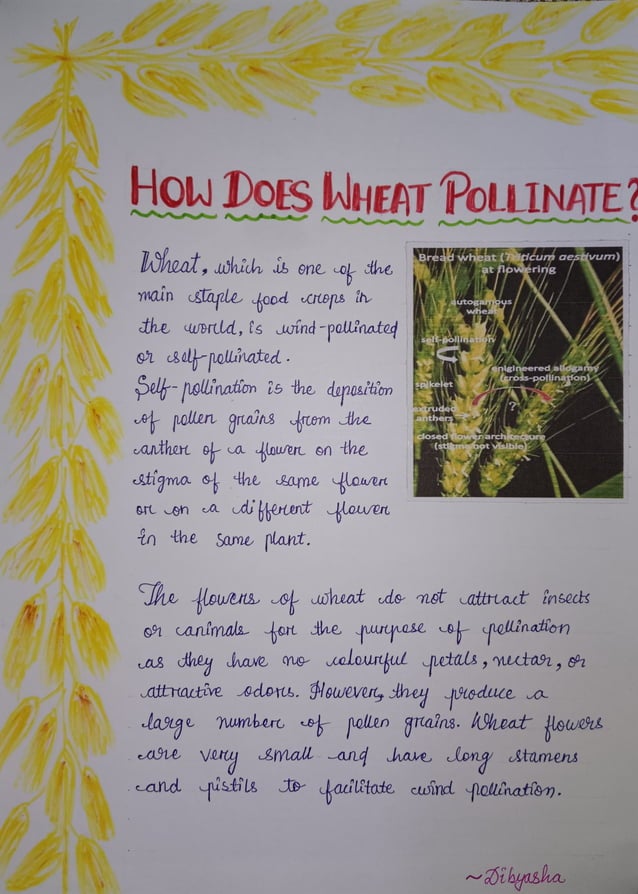 HOW DOES WHEAT POLLINATE?
Wheat, which is one of the
main staple food crops in
the world, is wind-pollinated
or self-pollinated.
Self-pollination is the deposition
of pollen grains from the
anther of a flower on the
stigma of the same flower
or on a different flower
in the same plant.
Bread wheat (Triticum aestivum)
at flowering
autogamous
wheat
self-pollination
engineered allogamy
(cross-pollination)
spikelet
?
extruded
anthers
closed flower architecture
(stigma not visible)
The flowers of wheat do not attract insects
or animals for the purpose of pollination
as they have no colourful petals, nectar, or
attractive odors. However, they produce a
large number of pollen grains. Wheat flowers
are very small and have long stamens
and pistils to facilitate wind pollination.
~Dibyasha